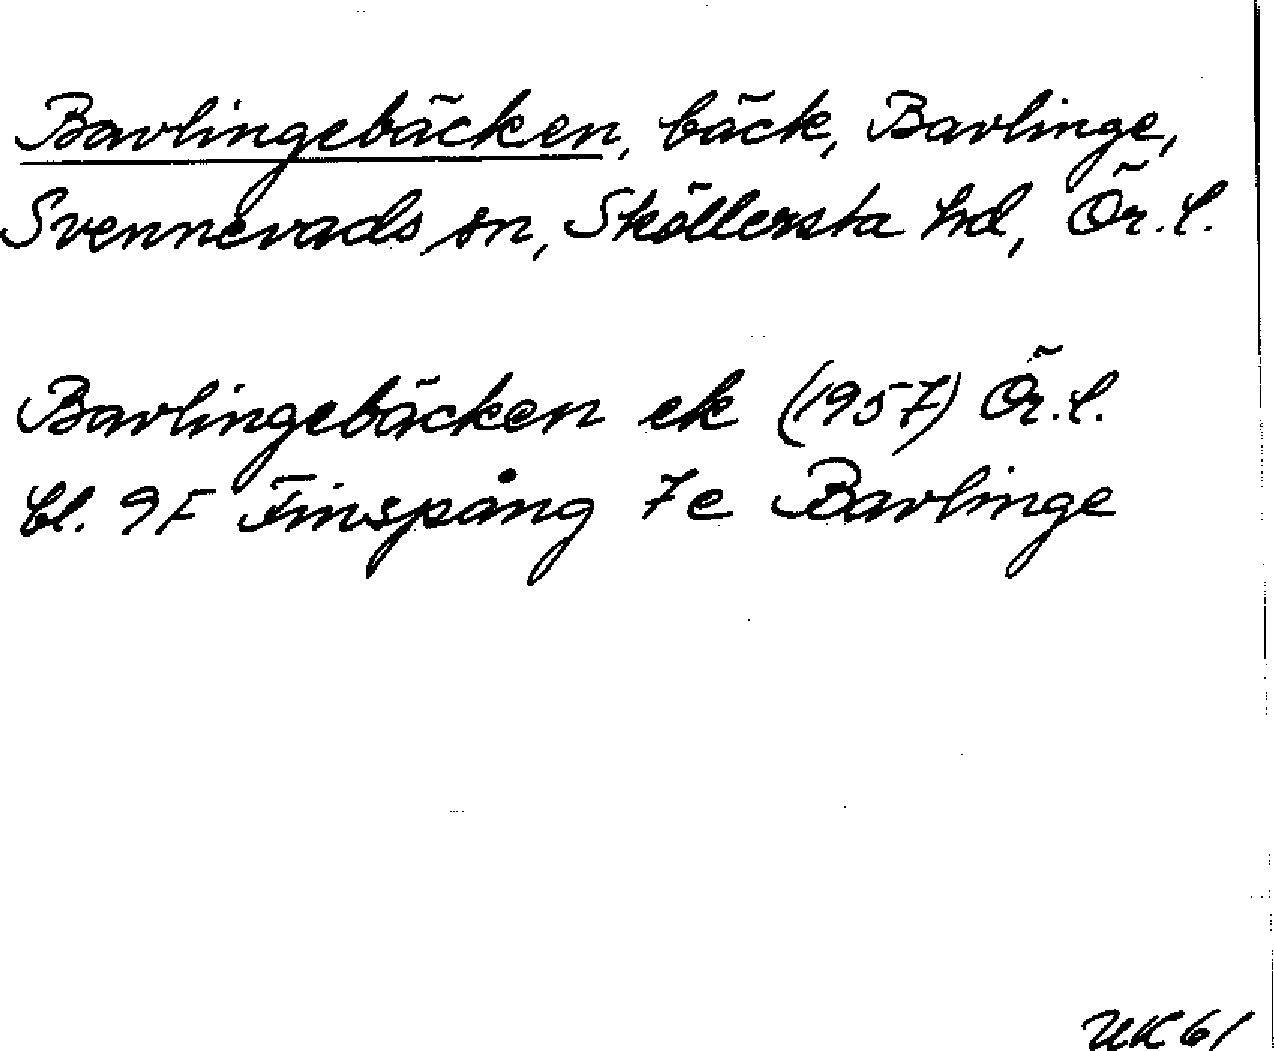 Bavlingebäcken, bäck, Bavlinge,
Svennevads sn, Sköllersta hd, Ör. l.
Bavlingebäcken ek (1957) Ör. l.
bl. 9F Finspång 7e Bavlinge
UK 61